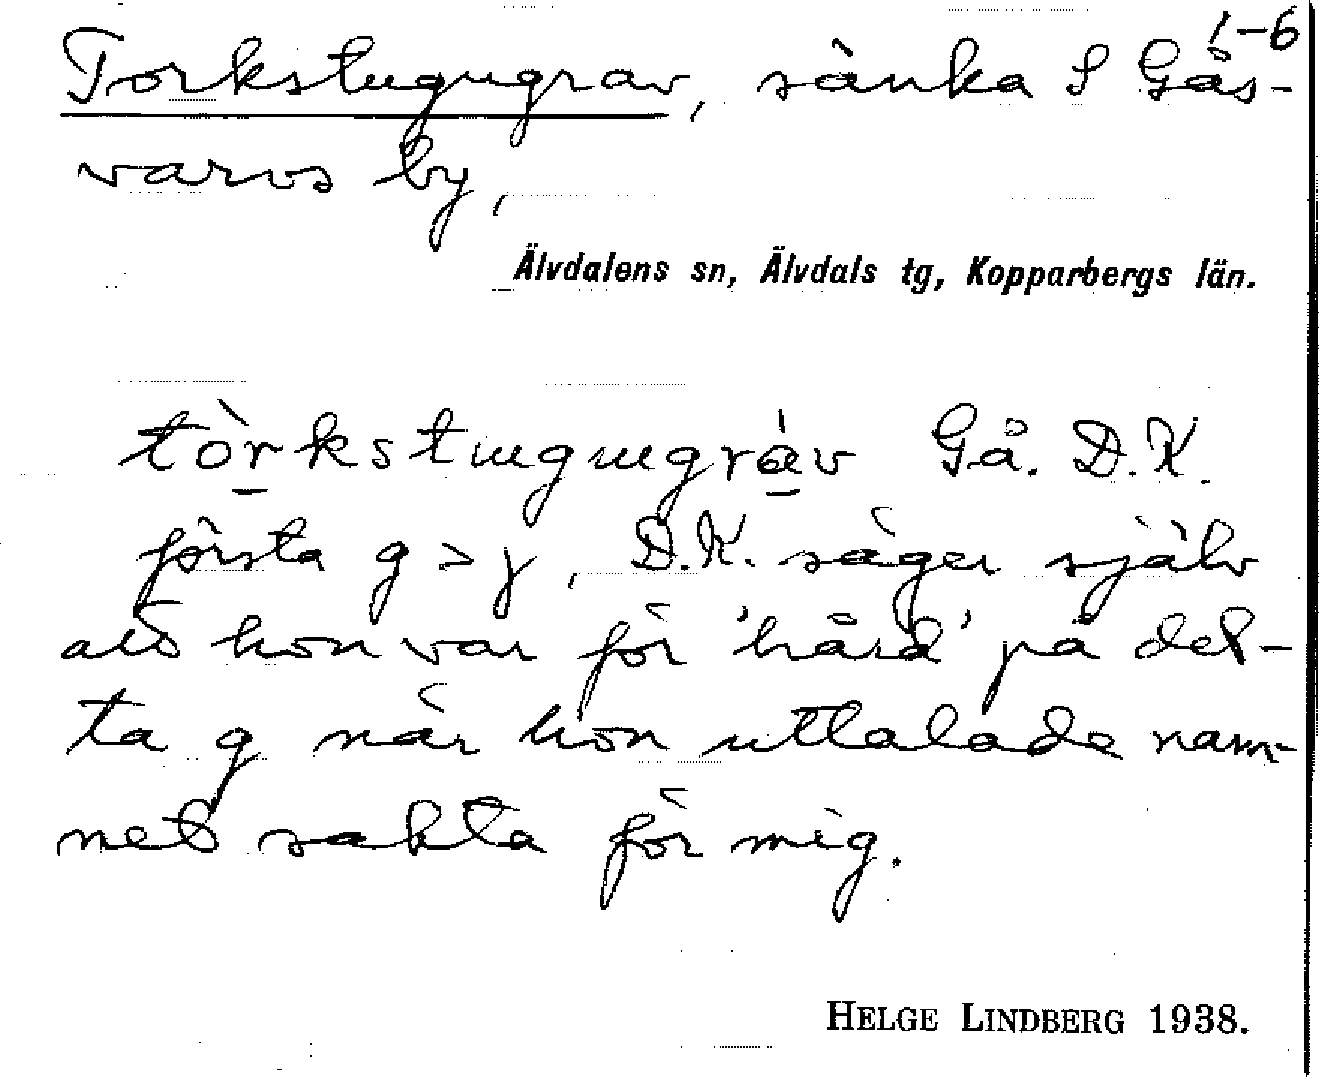 1-6
Torkstugugrav, sänka S Gås-
varvs by,
Älvdalens sn, Älvdals tg, Kopparbergs län.
tòrkstugugráv Gå. D.K.
första g > j, D.K. säger själv
att hon var för 'hård' på det-
ta g när hon uttalade nam-
net sakta för mig.
HELGE LINDBERG 1938.